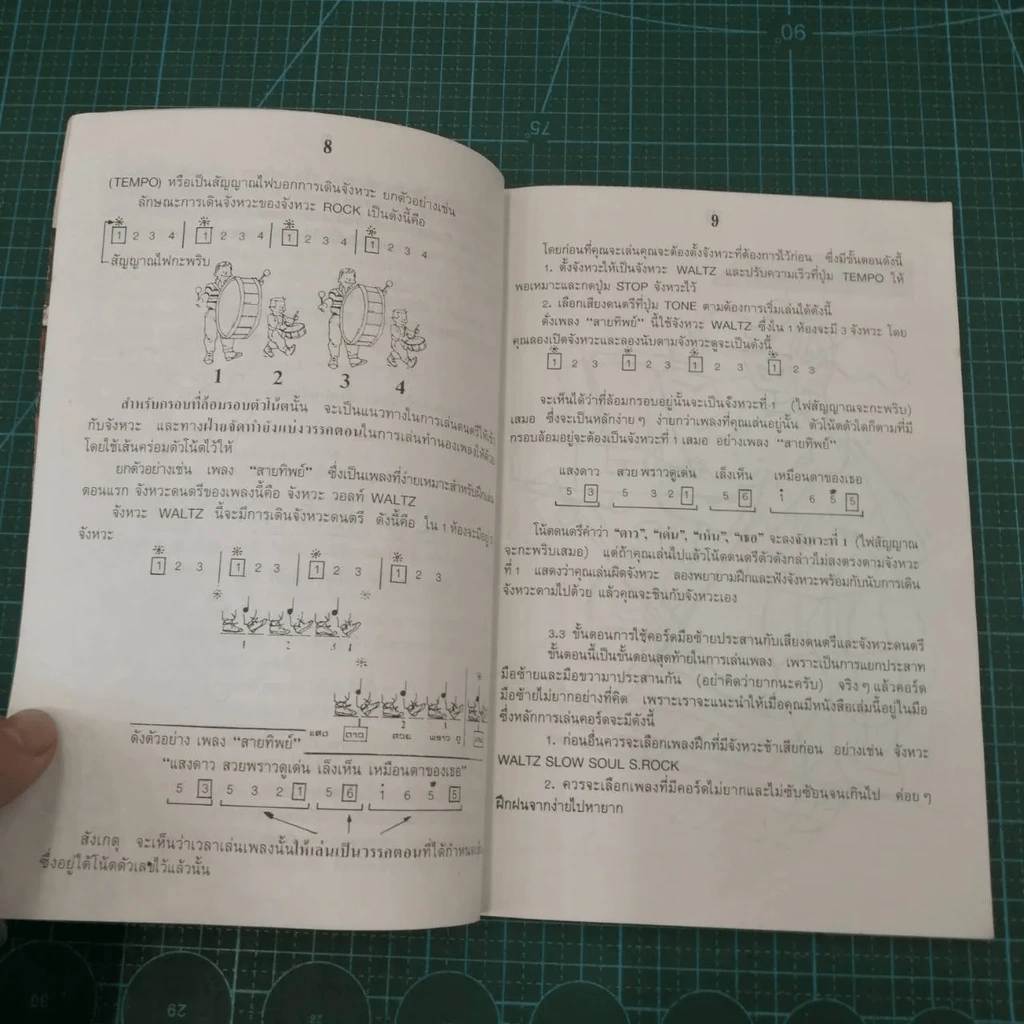 8
(TEMPO) หรือเป็นสัญญาณไฟบอกการเดินจังหวะ ยกตัวอย่างเช่น
ลักษณะการเดินจังหวะของจังหวะ ROCK เป็นดังนี้คือ
1 2 3 4 | 1 2 3 4 | 1 2 3 4 | 1 2 3 4
สัญญาณไฟกะพริบ
1 2 3 4
สำหรับกรอบที่ล้อมรอบตัวโน้ตนั้น จะเป็นแนวทางในการเล่นดนตรีให้เข้า
กับจังหวะ และทางฝ่ายจัดทำยังแบ่งวรรคตอนในการเล่นทำนองเพลงให้ด้วย
โดยใช้เส้นคร่อมตัวโน้ตไว้ให้
ยกตัวอย่างเช่น เพลง “สายทิพย์” ซึ่งเป็นเพลงที่ง่ายเหมาะสำหรับฝึกเล่น
ตอนแรก จังหวะดนตรีของเพลงนี้คือ จังหวะ วอลท์ WALTZ
จังหวะ WALTZ นี้จะมีการเดินจังหวะดนตรี ดังนี้คือ ใน 1 ห้องจะมีอยู่ 3
จังหวะ
1 2 3 | 1 2 3 | 1 2 3 | 1 2 3
1 2 3
แสง ดาว สวย พราว ดู
ดังตัวอย่าง เพลง “สายทิพย์”
“แสงดาว สวยพราวดูเด่น เล็งเห็น เหมือนตาของเธอ”
5 3 5 3 2 1 5 6 i 6 5 5
สังเกตุ จะเห็นว่าเวลาเล่นเพลงนั้นให้เล่นเป็นวรรคตอนที่ได้กำหนด
ซึ่งอยู่ใต้โน้ตตัวเลขไว้แล้วนั้น
9
โดยก่อนที่คุณจะเล่นคุณจะต้องตั้งจังหวะที่ต้องการไว้ก่อน ซึ่งมีขั้นตอนดังนี้
1. ตั้งจังหวะให้เป็นจังหวะ WALTZ และปรับความเร็วที่ปุ่ม TEMPO ให้
พอเหมาะและกดปุ่ม STOP จังหวะไว้
2. เลือกเสียงดนตรีที่ปุ่ม TONE ตามต้องการเริ่มเล่นได้ดังนี้
ดั่งเพลง “สายทิพย์” นี้ใช้จังหวะ WALTZ ซึ่งใน 1 ห้องจะมี 3 จังหวะ โดย
คุณลองเปิดจังหวะและลองนับตามจังหวะดูจะเป็นดังนี้
1 2 3 1 2 3 1 2 3 1 2 3
จะเห็นได้ว่าที่ล้อมกรอบอยู่นั้นจะเป็นจังหวะที่ 1 (ไฟสัญญาณจะกะพริบ)
เสมอ ซึ่งจะเป็นหลักง่าย ๆ ง่ายกว่าเพลงที่คุณเล่นอยู่นั้น ตัวโน้ตตัวใดก็ตามที่มี
กรอบล้อมอยู่จะต้องเป็นจังหวะที่ 1 เสมอ อย่างเพลง “สายทิพย์”
แสงดาว สวย พราวดูเด่น เล็งเห็น เหมือนตาของเธอ
5 3 5 3 2 1 5 6 i 6 5 5
โน้ตดนตรีคำว่า “ดาว”, “เด่น”, “เห็น”, “เธอ” จะลงจังหวะที่ 1 (ไฟสัญญาณ
จะกะพริบเสมอ) แต่ถ้าคุณเล่นไปแล้วโน้ตดนตรีตัวดังกล่าวไม่ลงตรงตามจังหวะ
ที่ 1 แสดงว่าคุณเล่นผิดจังหวะ ลองพยายามฝึกและฟังจังหวะพร้อมกับนับการเดิน
จังหวะตามไปด้วย แล้วคุณจะชินกับจังหวะเอง
3.3 ขั้นตอนการใช้คอร์ดมือซ้ายประสานกับเสียงดนตรีและจังหวะดนตรี
ขั้นตอนนี้เป็นขั้นตอนสุดท้ายในการเล่นเพลง เพราะเป็นการแยกประสาท
มือซ้ายและมือขวามาประสานกัน (อย่าคิดว่ายากนะครับ) จริง ๆ แล้วคอร์ด
มือซ้ายไม่ยากอย่างที่คิด เพราะเราจะแนะนำให้เมื่อคุณมีหนังสือเล่มนี้อยู่ในมือ
ซึ่งหลักการเล่นคอร์ดจะมีดังนี้
1. ก่อนอื่นควรจะเลือกเพลงฝึกที่มีจังหวะช้าเสียก่อน อย่างเช่น จังหวะ
WALTZ SLOW SOUL S.ROCK
2. ควรจะเลือกเพลงที่มีคอร์ดไม่ยากและไม่ซับซ้อนจนเกินไป ค่อย ๆ
ฝึกฝนจากง่ายไปหายาก